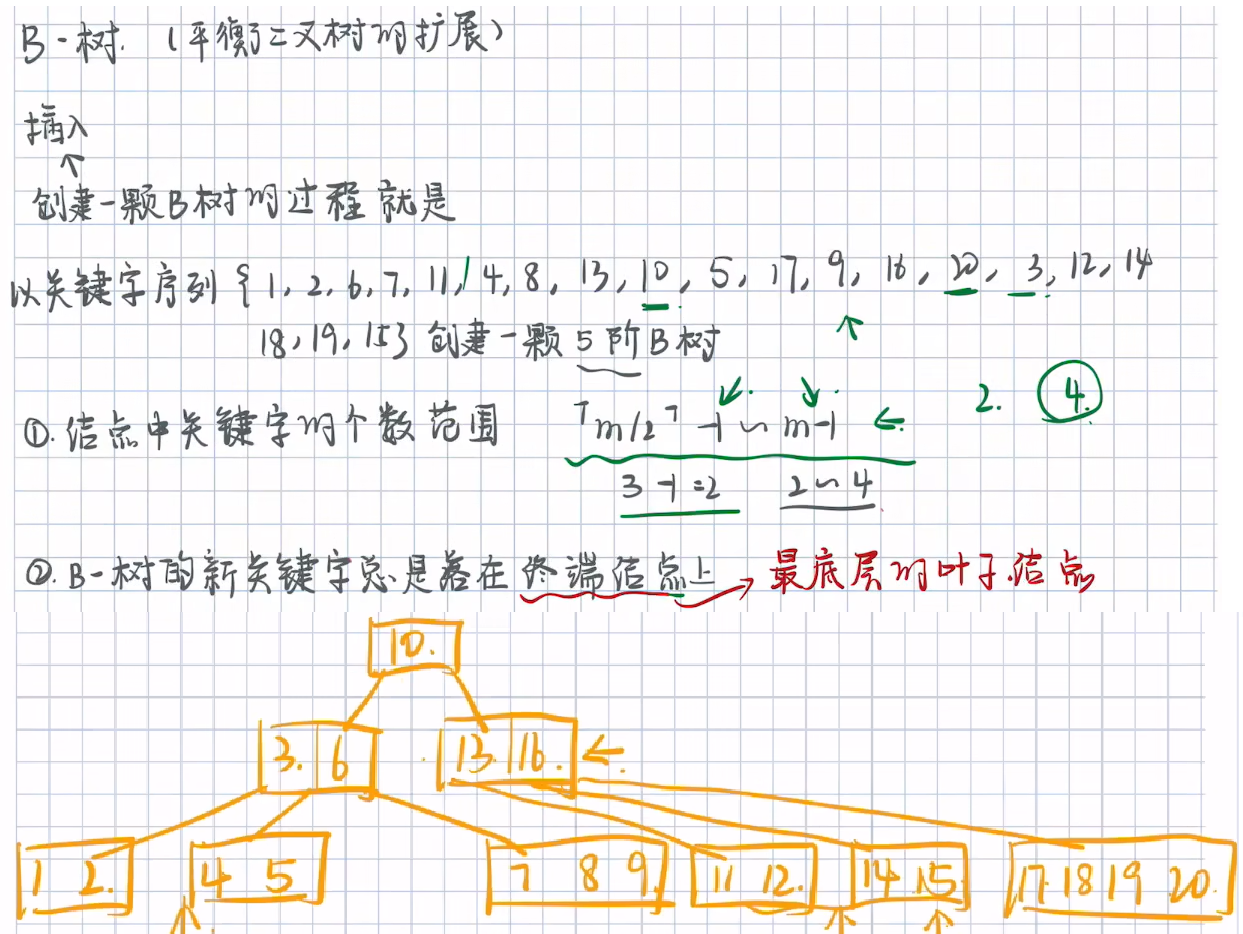 B-树. (平衡二叉树的扩展)
插入
↑
创建一颗B树的过程就是
以关键字序列 { 1, 2, 6, 7, 11, 4, 8, 13, 10, 5, 17, 9, 16, 20, 3, 12, 14
18, 19, 15} 创建一颗 5 阶 B 树
①. 结点中关键字的个数范围 ⌈m/2⌉ -1 ~ m-1 ← 2. 4.
3 -1 =2 2~4
②. B-树的新关键字总是落在终端结点上 → 最底层的叶子结点
10.
3. 6 13 16. ←
1 2. 4 5 7 8 9 11 12. 14 15 17 18 19 20.